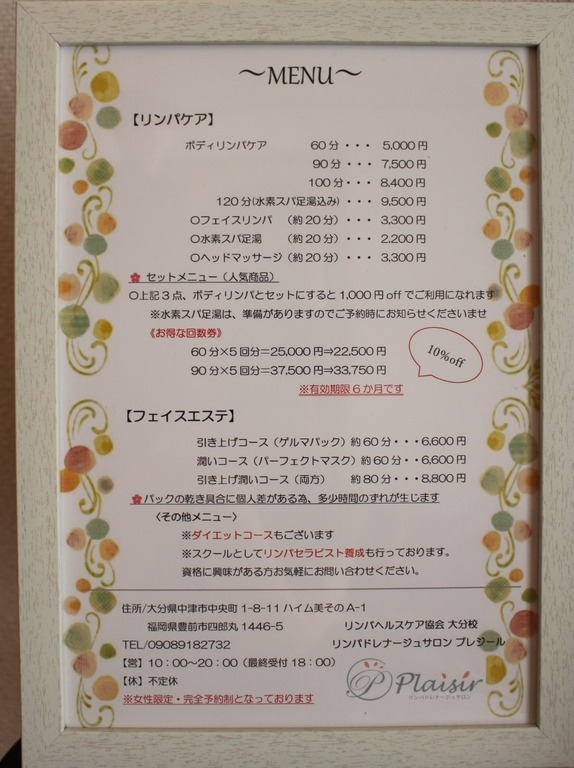 ～MENU～
【リンパケア】
ボディリンパケア 60分・・・ 5,000円
90分・・・ 7,500円
100分・・・ 8,400円
120分(水素スパ足湯込み)・・・ 9,500円
○フェイスリンパ （約20分）・・・ 3,300円
○水素スパ足湯 （約20分）・・・ 2,200円
○ヘッドマッサージ（約20分）・・・ 3,300円
セットメニュー（人気商品）
○上記3点、ボディリンパとセットにすると1,000円offでご利用になれます
※水素スパ足湯は、準備がありますのでご予約時にお知らせくださいませ
《お得な回数券》
60分×5回分＝25,000円⇒22,500円
90分×5回分＝37,500円⇒33,750円
10%off
※有効期限6か月です
【フェイスエステ】
引き上げコース（ゲルマパック）約60分・・・6,600円
潤いコース（パーフェクトマスク）約60分・・6,600円
引き上げ潤いコース（両方） 約80分・・・8,800円
パックの乾き具合に個人差がある為、多少時間のずれが生じます
〈その他メニュー〉
※ダイエットコースもございます
※スクールとしてリンパセラピスト養成も行っております。
資格に興味がある方お気軽にお問い合わせください。
住所/大分県中津市中央町1-8-11ハイム美そのA-1
福岡県豊前市四郎丸1446-5 リンパヘルスケア協会 大分校
TEL/09089182732 リンパドレナージュサロン プレジール
【営】10：00～20：00（最終受付18：00）
【休】不定休
※女性限定・完全予約制となっております
P Plaisir
リンパドレナージュサロン